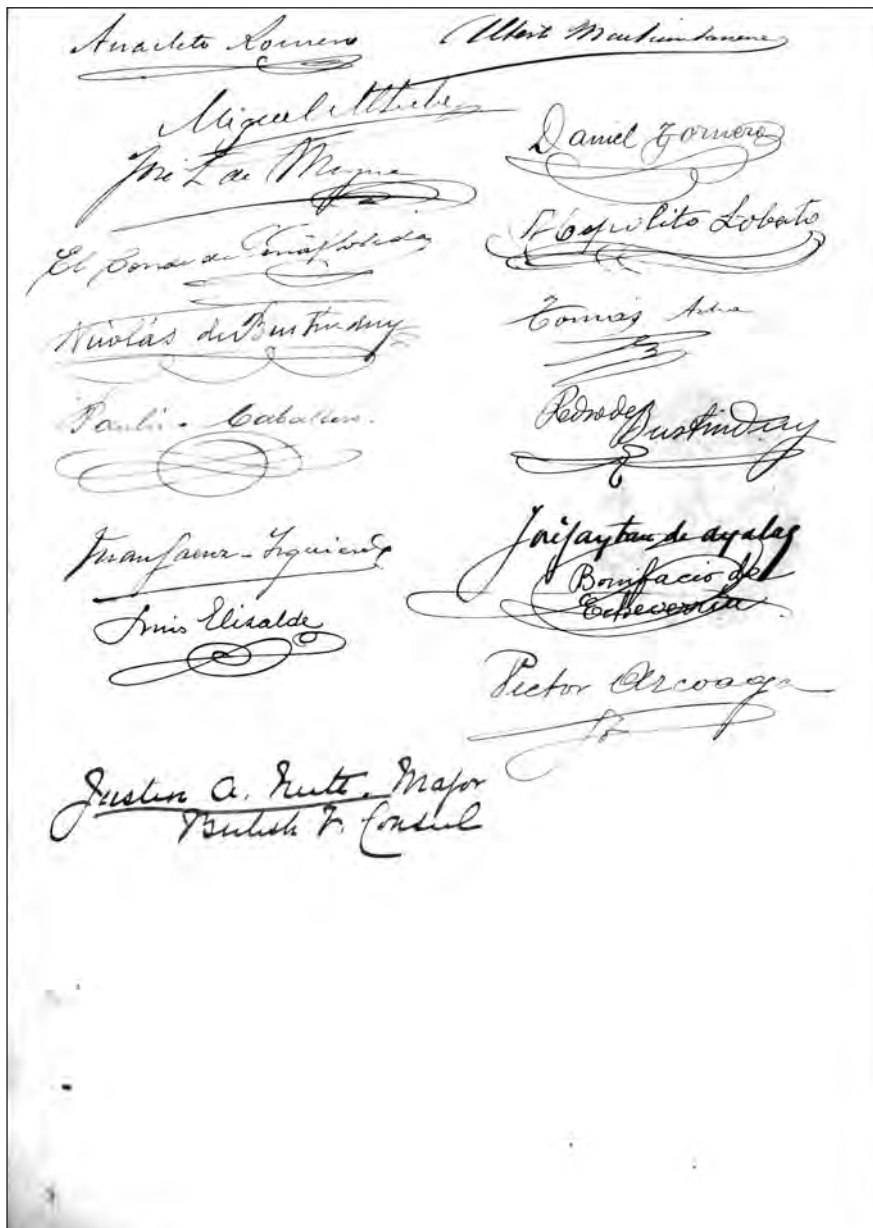 Anacleto Romero
Alberto
Miguel
José L de
Daniel Tornero
El Conde de Peñaflorida
Hipolito Lobato
Nicolás de Bustinduy
Tomás
Paulin. Caballero.
Pedro de Bustinduy
Juan Saenz-Izquierdo
José Gaytan de ayala
Bonifacio de
Echeverria
Luis Elizalde
Victor Arcoaga
Justin A. Major
British V. Consul